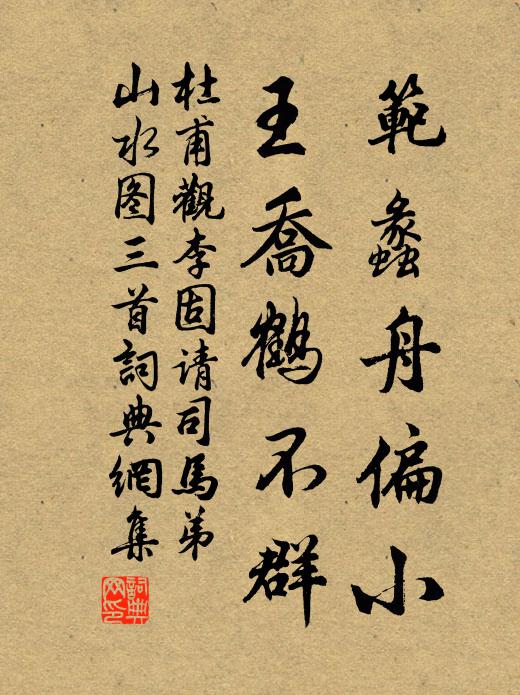 範蠡舟偏小
王喬鶴不群
杜甫觀李固请司馬弟
山水图三首詞典網集
詞典
网印